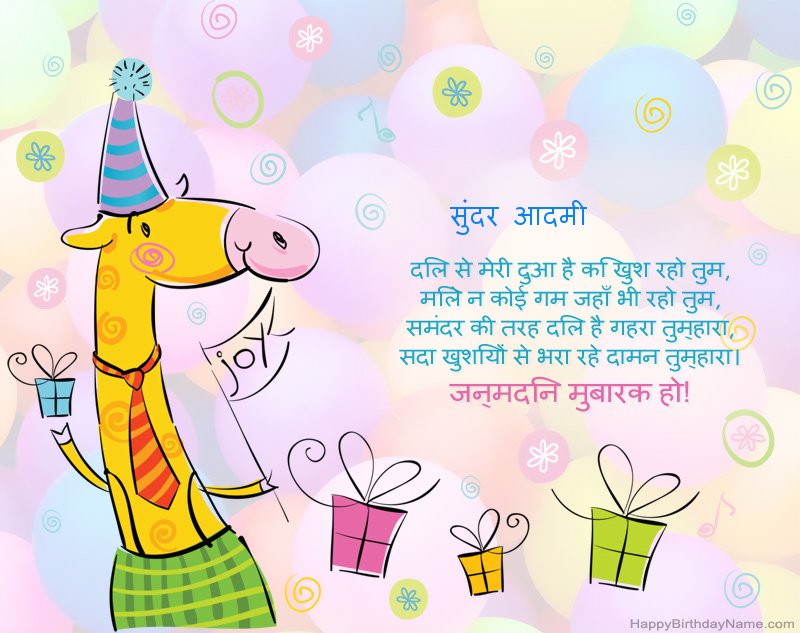 सुंदर आदमी
दलि से मेरी दुआ है कि खुश रहो तुम,
मलिे न कोई गम जहाँ भी रहो तुम,
समंदर की तरह दलि है गहरा तुम्हारा,
सदा खुशयिों से भरा रहे दामन तुम्हारा।
जन्मदनि मुबारक हो!
joy
HappyBirthdayName.com